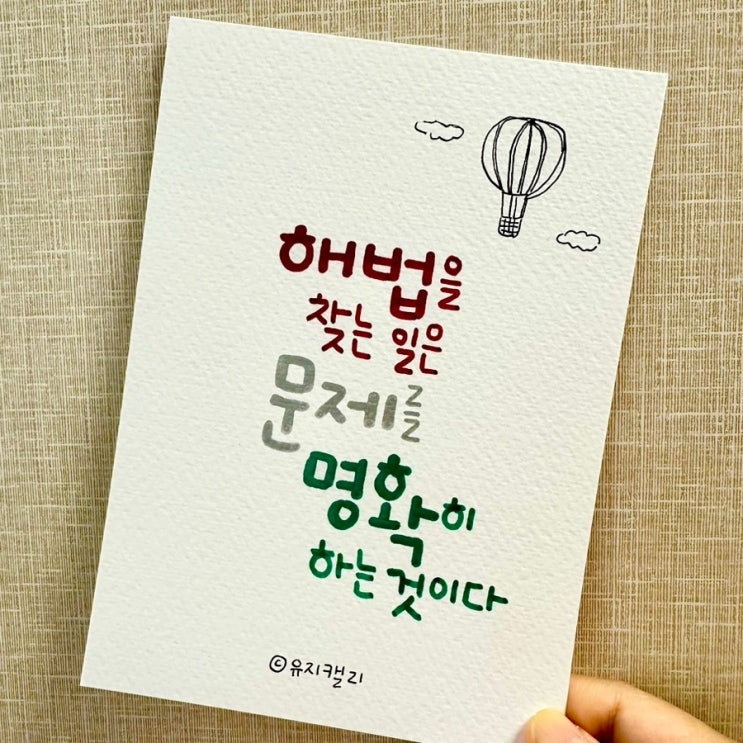 해법을
찾는 일은
문제를
명확히
하는 것이다
©유지캘리